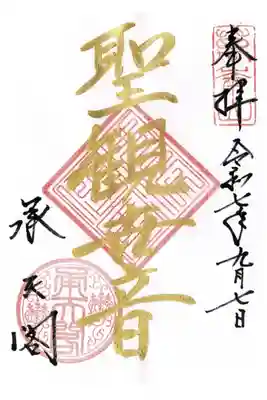 奉拝
令和七年九月七日
聖観世音
承天閣